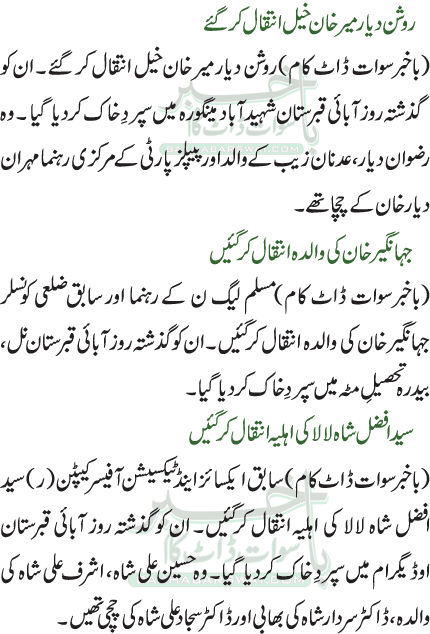 روشن دیار میر خان خیل انتقال کر گئے
(باخبر سوات ڈاٹ کام) روشن دیار میر خان خیل انتقال کر گئے۔ ان کو
گذشتہ روز آبائی قبرستان شہید آباد مینگورہ میں سپردِ خاک کر دیا گیا۔ وہ
رضوان دیار، عدنان زیب کے والد اور پیپلز پارٹی کے مرکزی رہنما مہران
دیار خان کے چچا تھے۔
جہانگیر خان کی والدہ انتقال کر گئیں
(باخبر سوات ڈاٹ کام) مسلم لیگ ن کے رہنما اور سابق ضلعی کونسلر
جہانگیر خان کی والدہ انتقال کر گئیں۔ ان کو گذشتہ روز آبائی قبرستان نل،
بیدرہ تحصیلِ مٹہ میں سپردِ خاک کر دیا گیا۔
سید افضل شاہ لالا کی اہلیہ انتقال کر گئیں
(باخبر سوات ڈاٹ کام) سابق ایکسائز اینڈ ٹیکسیشن آفیسر کیپٹن (ر) سید
افضل شاہ لالا کی اہلیہ انتقال کر گئیں۔ ان کو گذشتہ روز آبائی قبرستان
اوڈیگرام میں سپردِ خاک کر دیا گیا۔ وہ حسین علی شاہ، اشرف علی شاہ کی
والدہ، ڈاکٹر سردار شاہ کی بھابی اور ڈاکٹر سجاد علی شاہ کی چچی تھیں۔